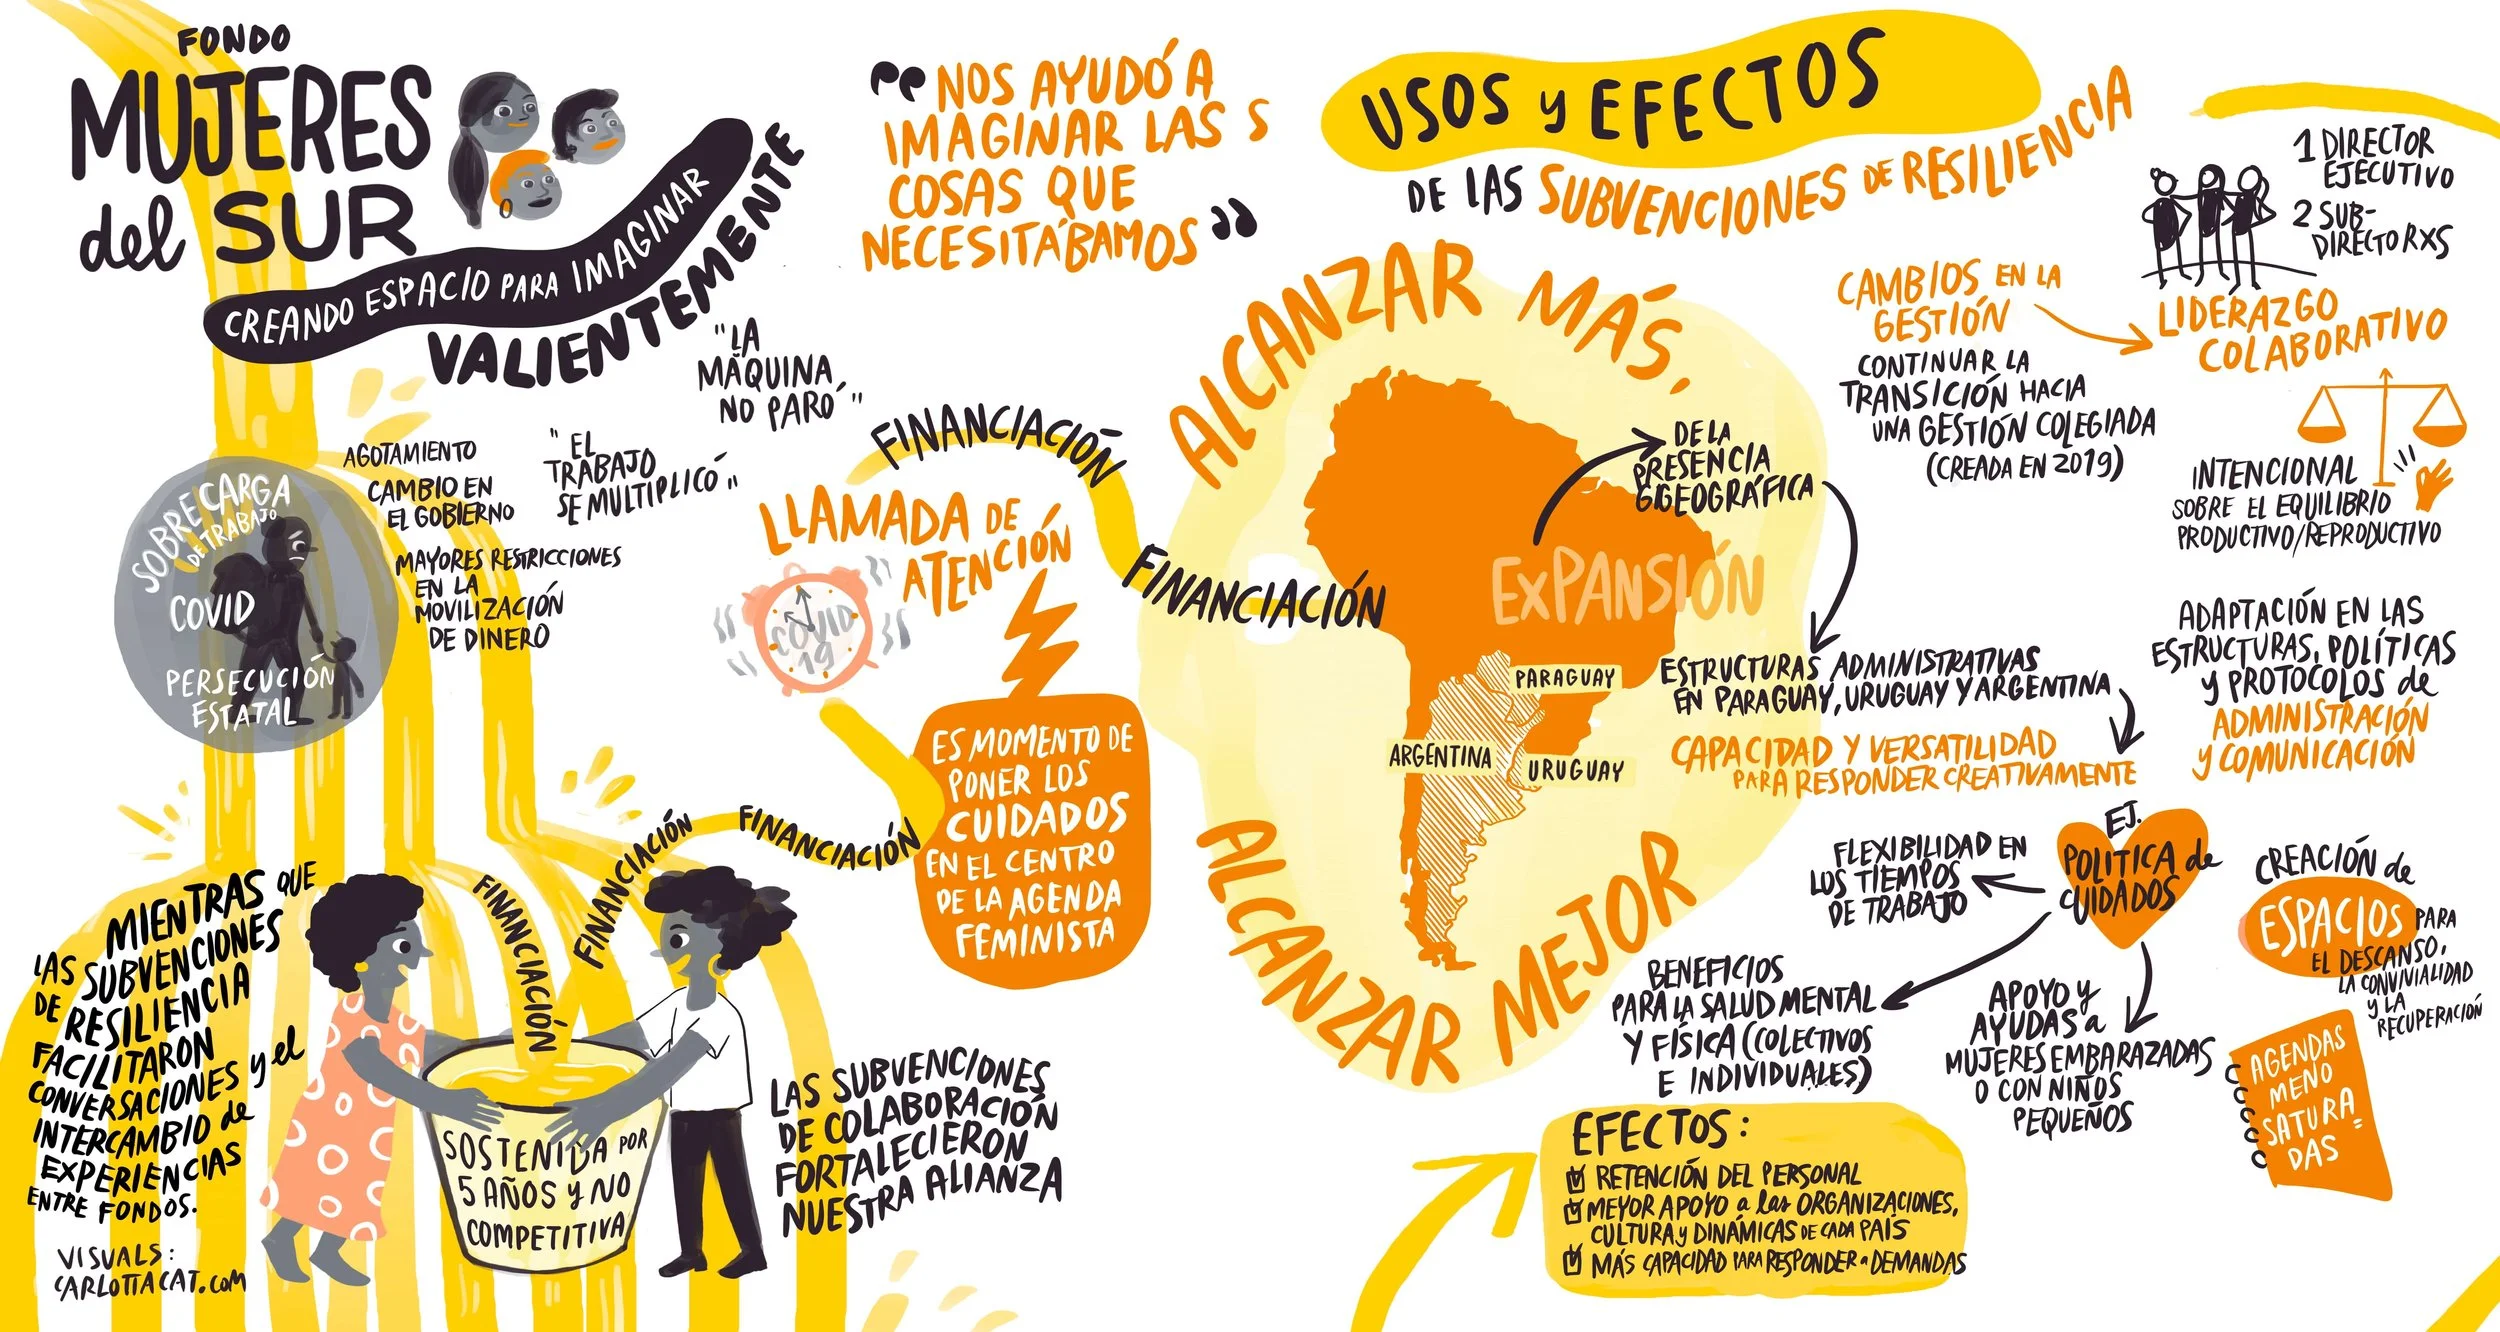 FONDO
MUJERES
del SUR
CREANDO ESPACIO PARA IMAGINAR
VALIENTEMENTE
"LA
MÁQUINA
NO PARÓ"
"EL
TRABAJO
SE MULTIPLICÓ"
AGOTAMIENTO
CAMBIO EN
EL GOBIERNO
MAYORES RESTRICCIONES
EN LA
MOVILIZACIÓN
DE DINERO
SOBRECARGA
DE TRABAJO
COVID
PERSECUCIÓN
ESTATAL
MIENTRAS QUE
LAS SUBVENCIONES
DE RESILIENCIA
FACILITARON
CONVERSACIONES y el
INTERCAMBIO de
EXPERIENCIAS
ENTRE FONDOS.
VISUALS:
CARLOTTACAT.COM
FINANCIACIÓN
FINANCIACIÓN
FINANCIACIÓN
SOSTENIDA POR
5 AÑOS y NO
COMPETITIVA
LAS SUBVENCIONES
DE COLABORACIÓN
FORTALECIERON
NUESTRA ALIANZA
"NOS AYUDÓ A
IMAGINAR LAS S
COSAS QUE
NECESITÁBAMOS"
LLAMADA DE
ATENCIÓN
COVID
19
ES MOMENTO DE
PONER LOS
CUIDADOS
EN EL CENTRO
DE LA AGENDA
FEMINISTA
FINANCIACIÓN
FINANCIACIÓN
USOS y EFECTOS
DE LAS SUBVENCIONES DE RESILIENCIA
ALCANZAR MÁS,
ALCANZAR MEJOR
EXPANSIÓN
DE LA
PRESENCIA
GIGEOGRÁFICA
PARAGUAY
ARGENTINA
URUGUAY
ESTRUCTURAS ADMINISTRATIVAS
EN PARAGUAY, URUGUAY Y ARGENTINA
CAPACIDAD Y VERSATILIDAD
PARA RESPONDER CREATIVAMENTE
EJ.
POLITICA de
CUIDADOS
FLEXIBILIDAD EN
LOS TIEMPOS
DE TRABAJO
BENEFICIOS
PARA LA SALUD MENTAL
Y FÍSICA (COLECTIVOS
E INDIVIDUALES)
APOYO y
AYUDAS a
MUJERES EMBARAZADAS
O CON NIÑOS
PEQUEÑOS
EFECTOS:
RETENCIÓN DEL PERSONAL
MEYOR APOYO a las ORGANIZACIONES,
CULTURA y DINÁMICAS DE CADA PAÍS
MÁS CAPACIDAD PARA RESPONDER a DEMANDAS
CAMBIOS EN LA
GESTIÓN
CONTINUAR LA
TRANSICIÓN HACIA
UNA GESTIÓN COLEGIADA
(CREADA EN 2019)
1 DIRECTOR
EJECUTIVO
2 SUB-
DIRECTORXS
LIDERAZGO
COLABORATIVO
INTENCIONAL
SOBRE EL EQUILIBRIO
PRODUCTIVO/REPRODUCTIVO
ADAPTACIÓN EN LAS
ESTRUCTURAS, POLÍTICAS
y PROTOCOLOS de
ADMINISTRACIÓN
y COMUNICACIÓN
CREACIÓN de
ESPACIOS PARA
EL DESCANSO,
LA CONVIVIALIDAD
Y LA
RECUPERACIÓN
AGENDAS
MENO
SATURA=
DAS